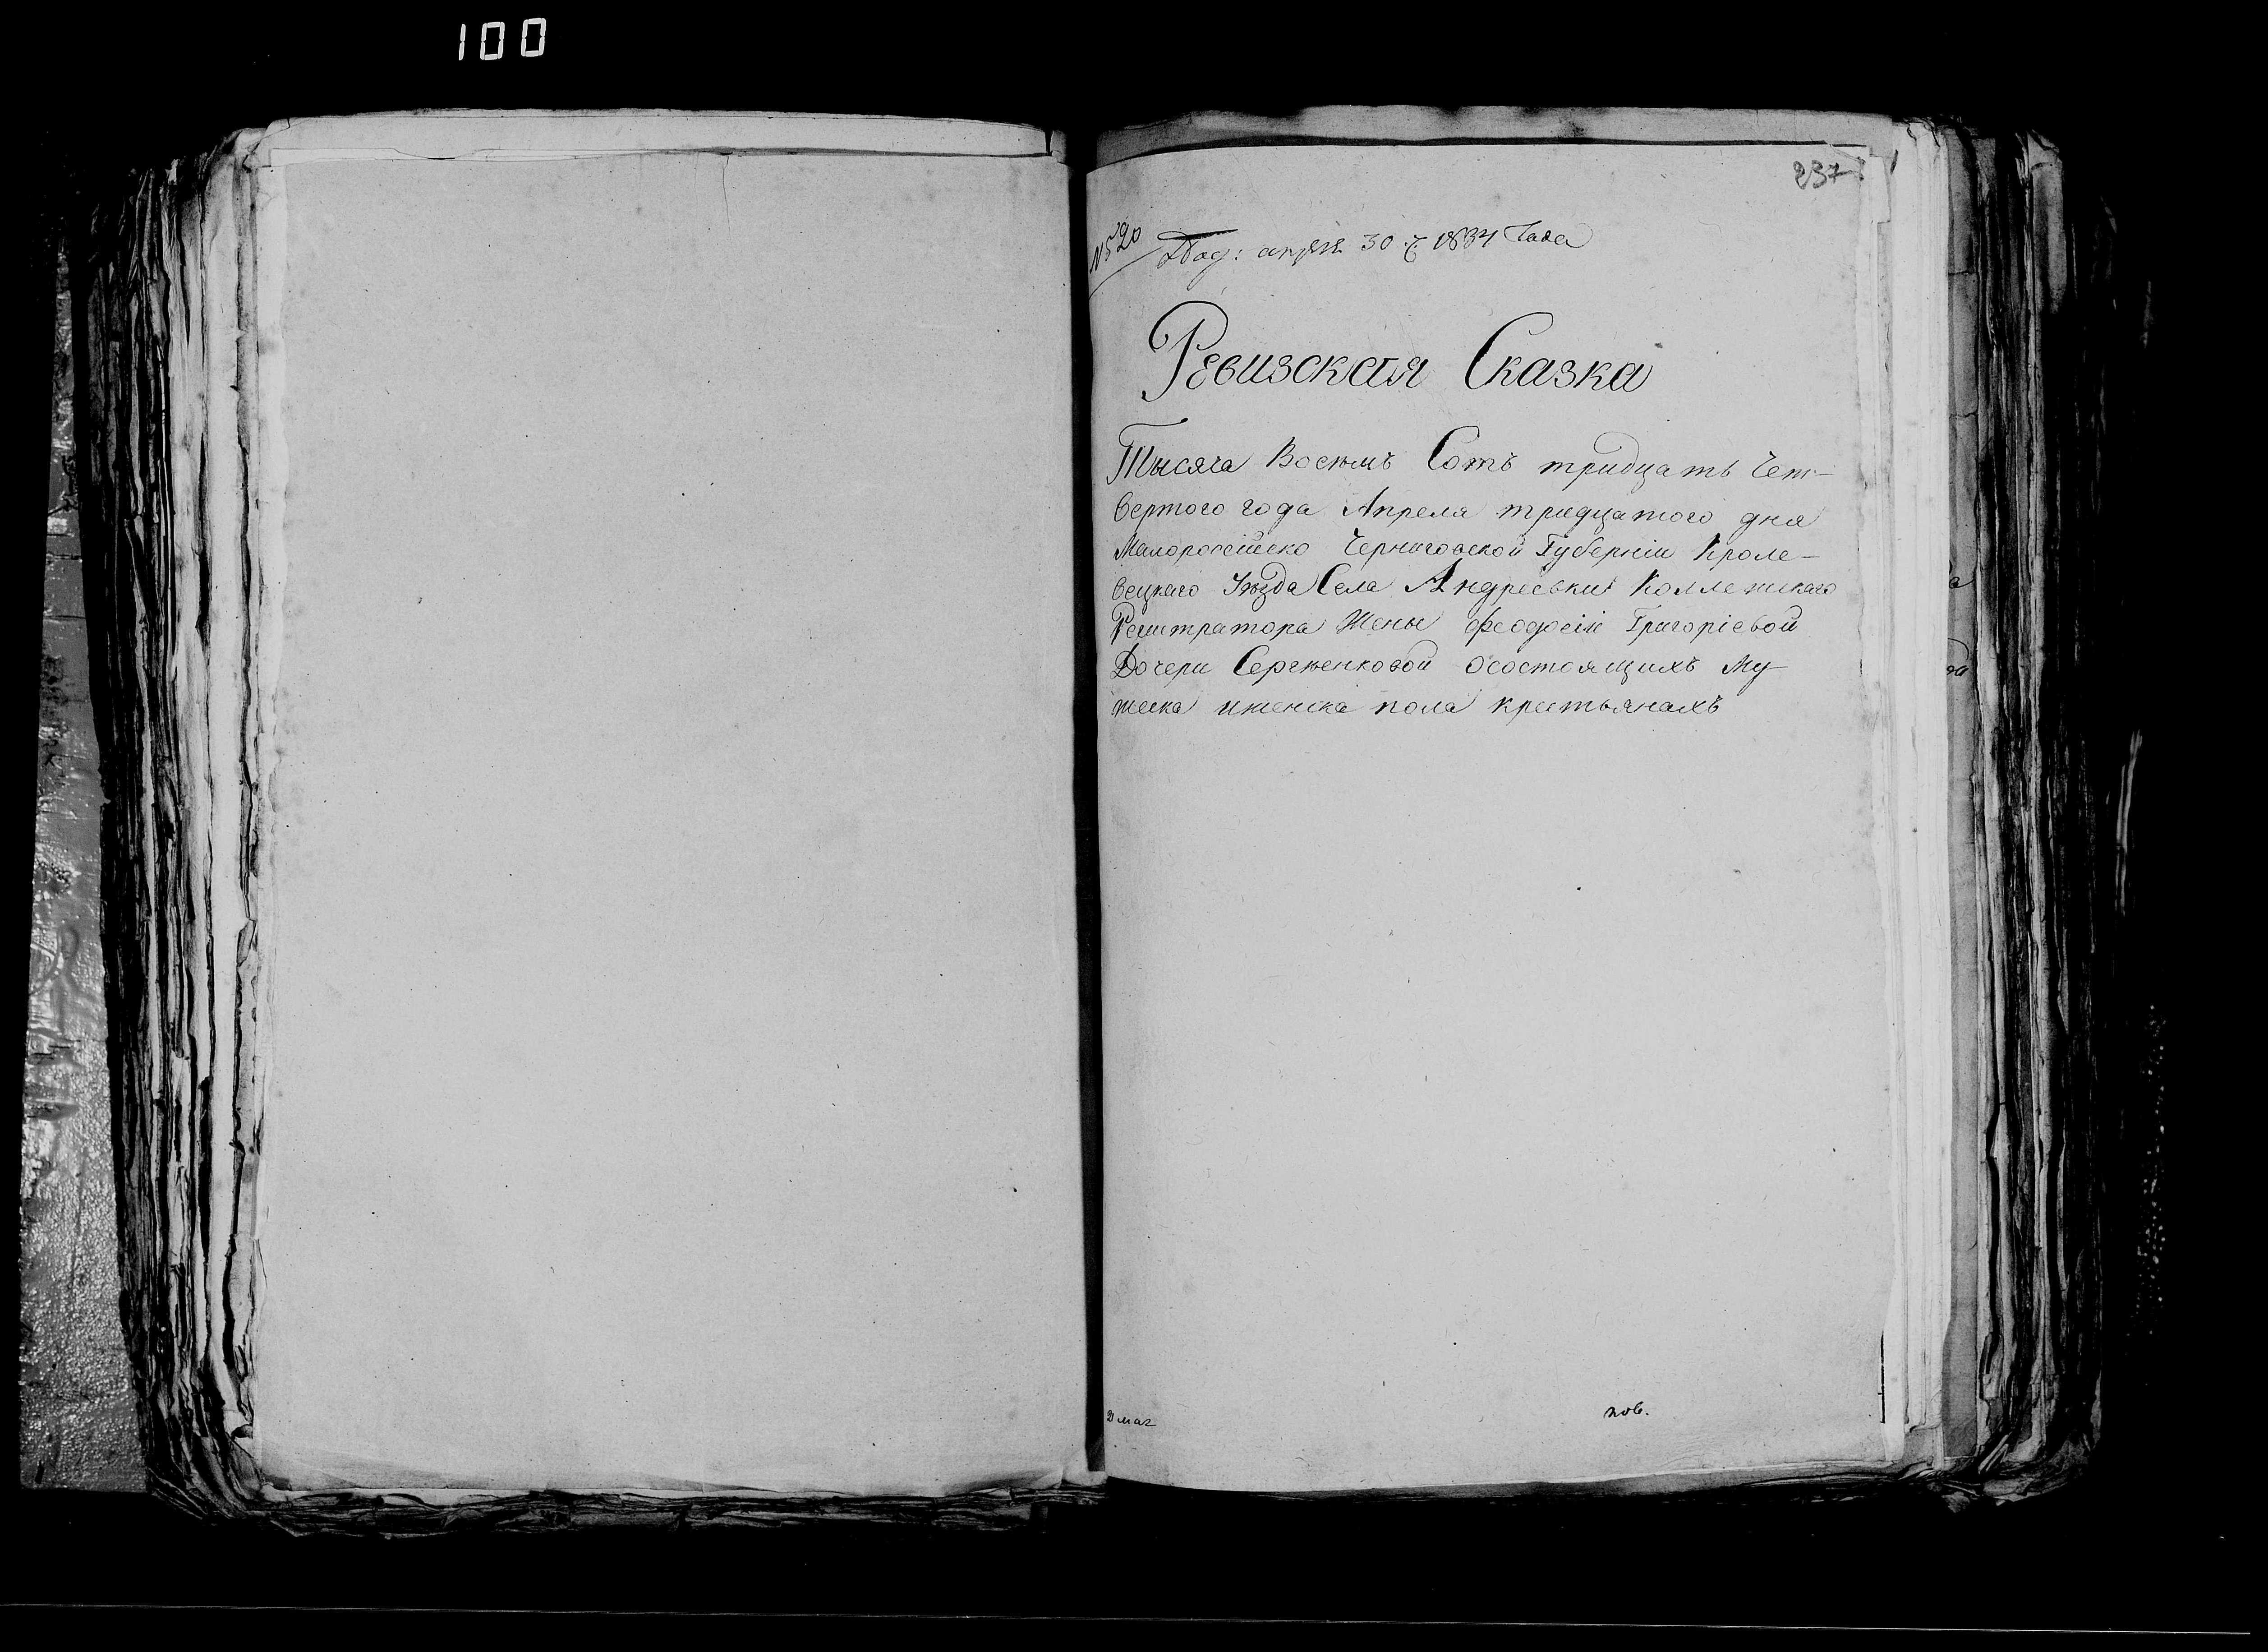 100
237
№ 520
Под: апреля 30 ч 1834 Года
Ревизская Сказка
Тысяча Восемъ Сотъ тридцать Чет-
вертого года Апреля тридцатого дня
Малоросейско Черниговской Губерніи Кроле-
вецкаго Уезда Села Андреевки Коллежскаго
Регитратора Жены Феодосіи Григоріевой
Дочери Сергеенковой осостоящихъ Му
жеска иженска пола крестьянахъ
пов.